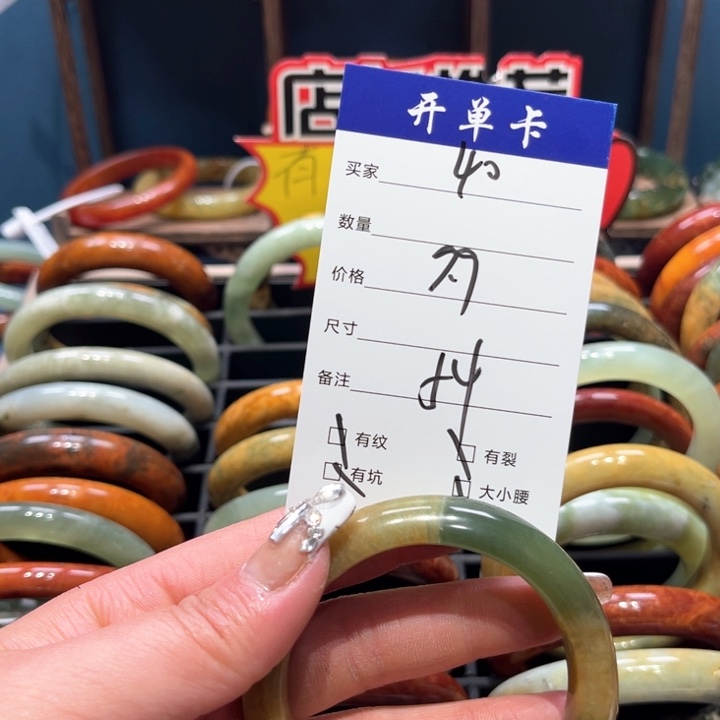 店
有
开单卡
买家 40
数量
价格
尺寸
备注 84
有纹
有裂
有坑
大小腰